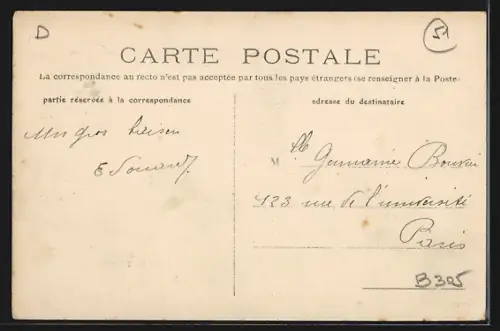 D
51
CARTE POSTALE
La correspondance au recto n'est pas acceptée par tous les pays étrangers (se renseigner à la Poste
partie réservée à la correspondance
adresse du destinataire
Un gros baiser
Edouard
M
Germaine
123 rue de l'université
Paris
B305